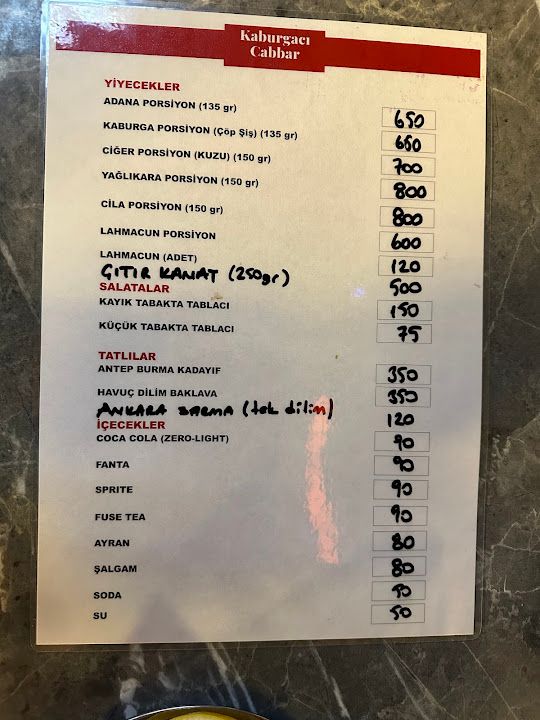 Kaburgacı
Cabbar
YİYECEKLER
ADANA PORSİYON (135 gr) 650
KABURGA PORSİYON (Çöp Şiş) (135 gr) 650
CİĞER PORSİYON (KUZU) (150 gr) 700
YAĞLIKARA PORSİYON (150 gr) 800
CİLA PORSİYON (150 gr) 800
LAHMACUN PORSİYON 600
LAHMACUN (ADET) 120
ÇITIR KANAT (250gr) 500
SALATALAR
KAYIK TABAKTA TABLACI 150
KÜÇÜK TABAKTA TABLACI 75
TATLILAR
ANTEP BURMA KADAYIF 350
HAVUÇ DİLİM BAKLAVA 350
ANKARA SARMA (tek dilim) 120
İÇECEKLER
COCA COLA (ZERO-LIGHT) 90
FANTA 90
SPRITE 90
FUSE TEA 90
AYRAN 80
ŞALGAM 80
SODA 50
SU 50